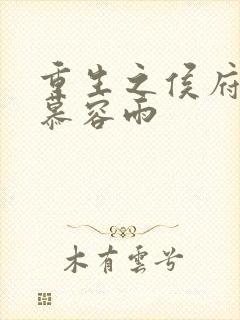 重生之侯府
慕容雨
木有雲兮